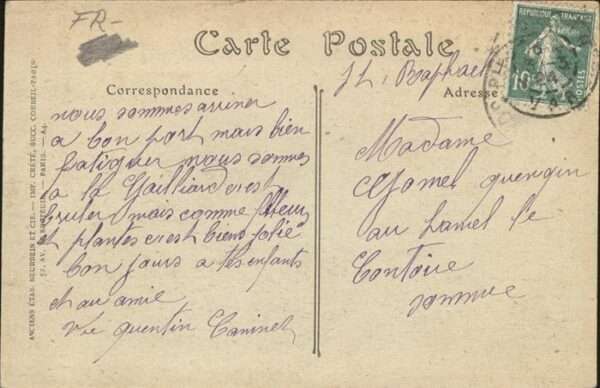 FR-
Carte Postale
St. Raphael
Correspondance
Adresse
REPUBLIQUE FRANÇAISE
10
POSTES
24
VAR
nous sommes arriver
a bon port mais bien
fatiguer nous sommes
a la Gailliard c'est
bruler mais comme fleur
et plantes c'est bien jolie
bon jours a les enfants
et au amie
Vve quentin Caninet
Madame
Gomel quengin
au hamel le
Contoire
somme
ANCIENS ÉTAB. NEURDEIN ET CIE. — IMP. CRÉTÉ, SUCC. CORBEIL-PARIS
PARIS.